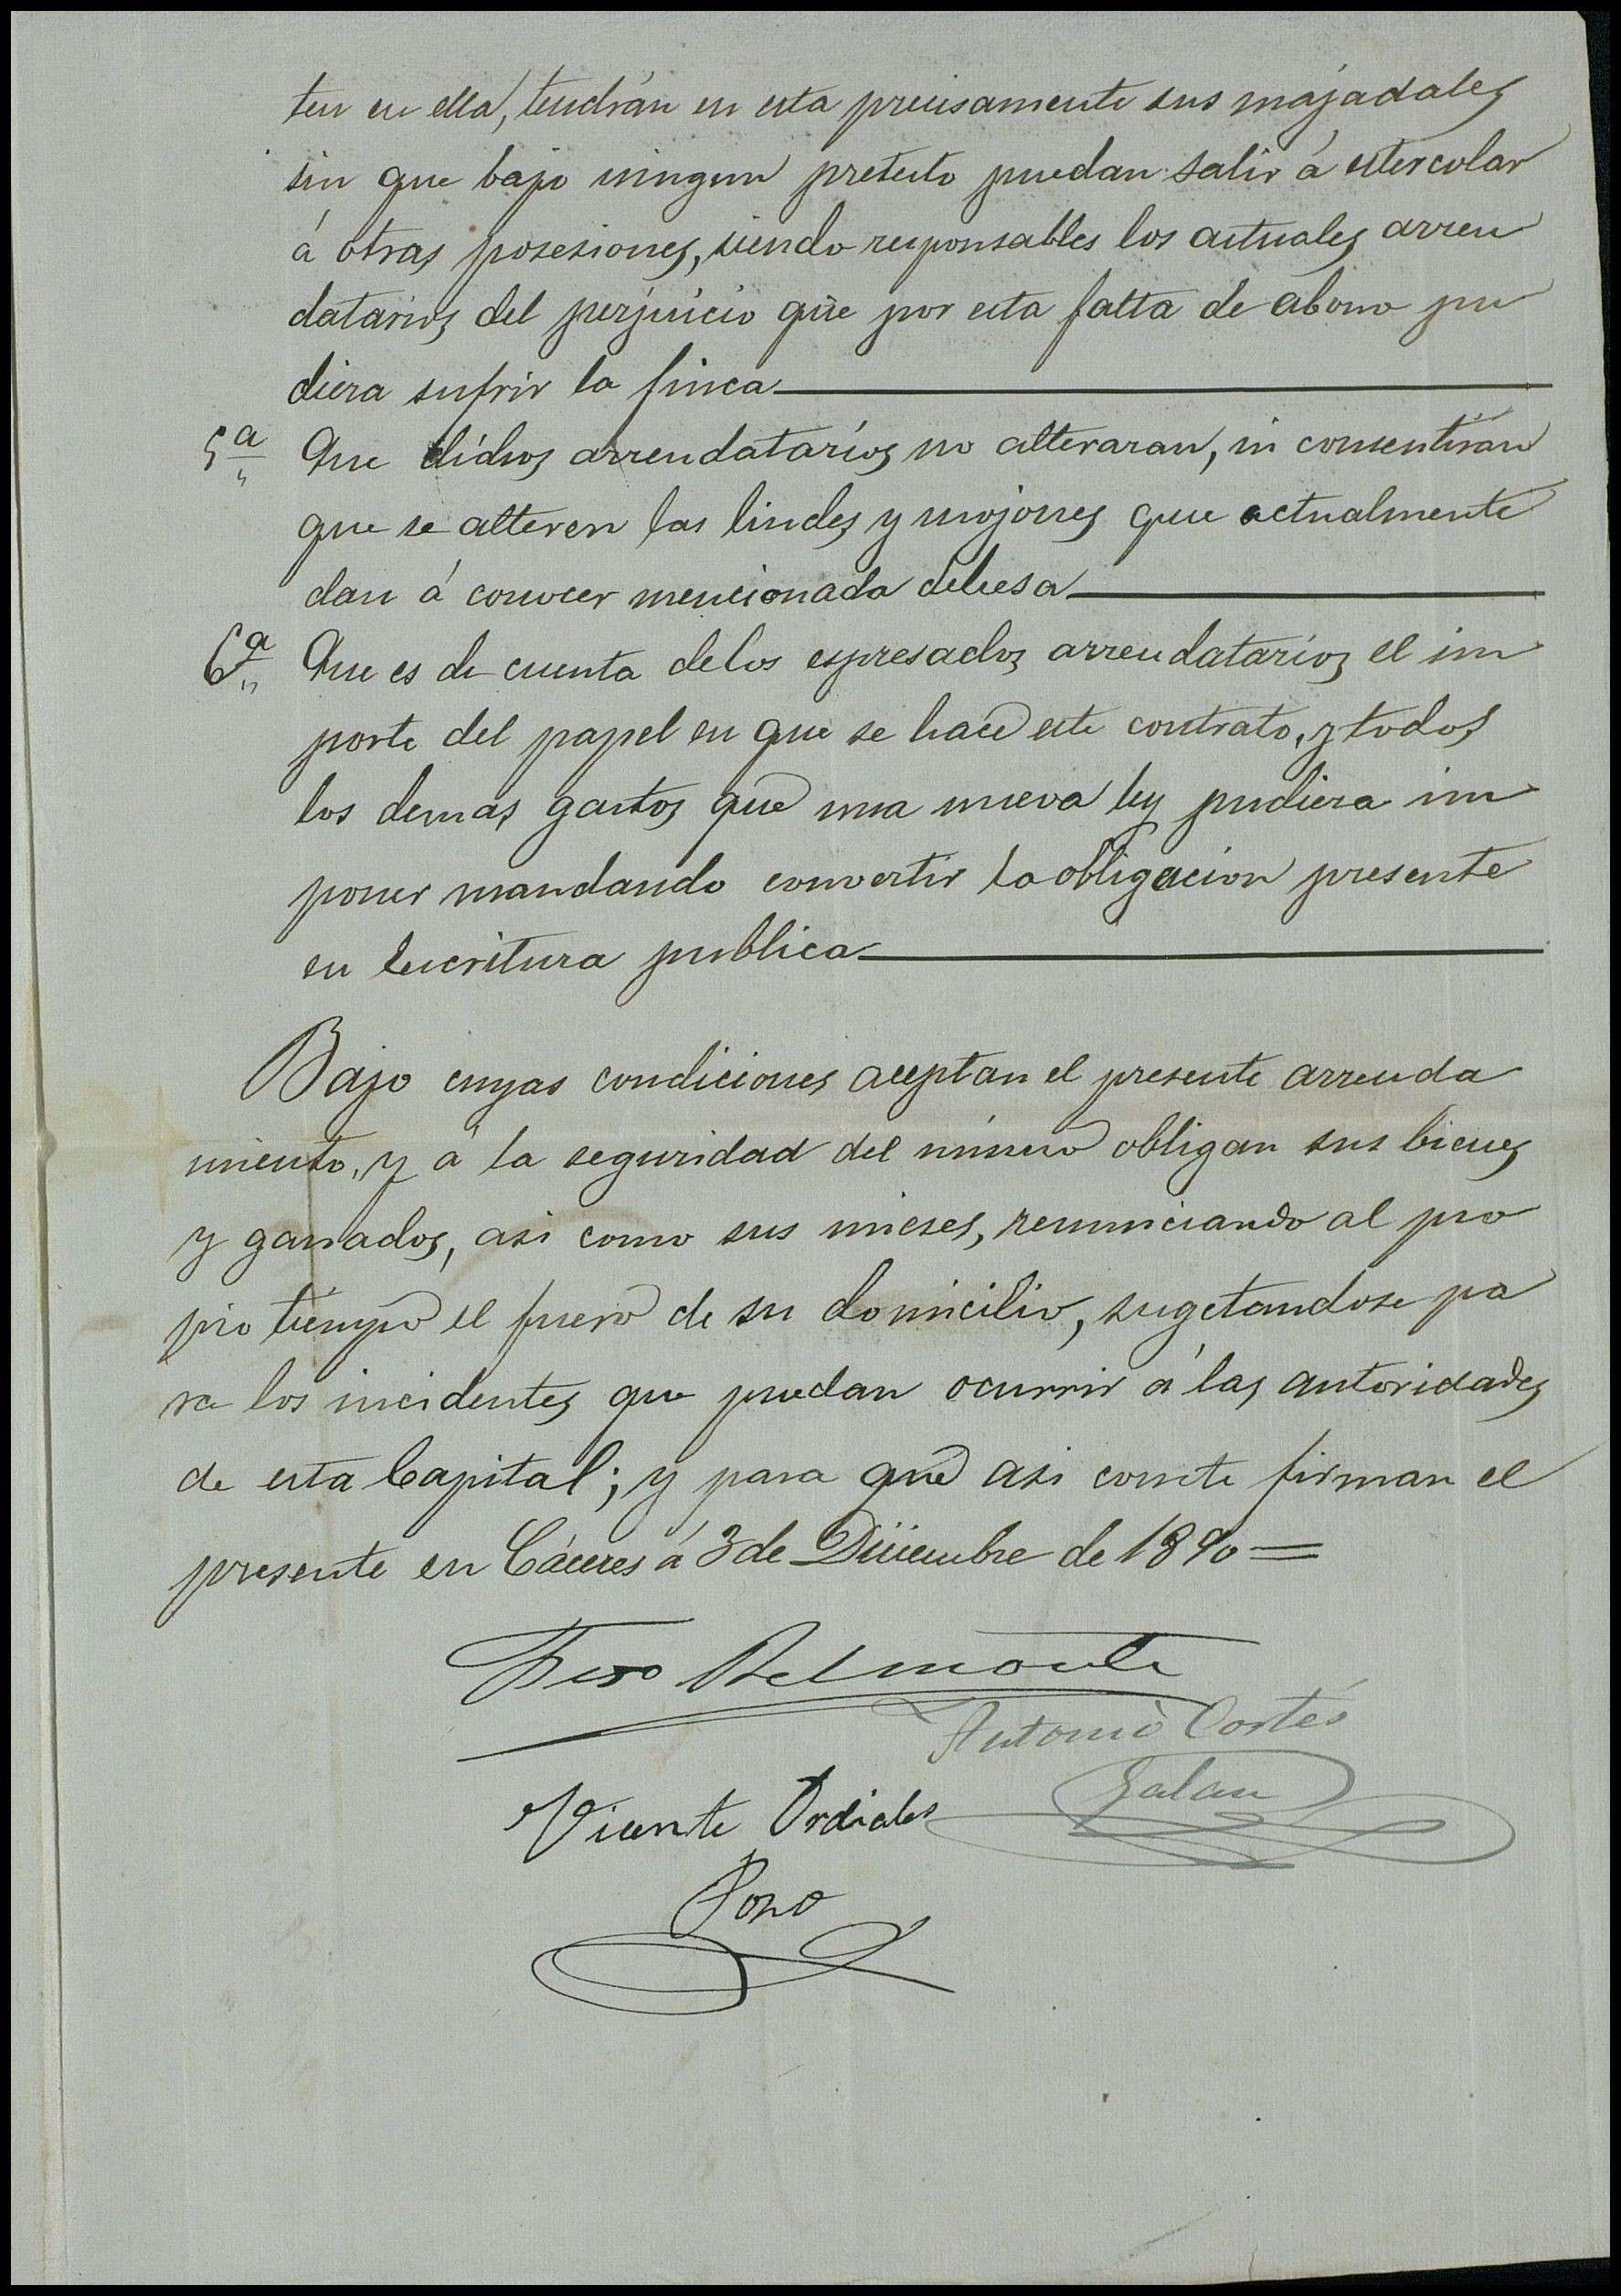 ten en ella, tendrán en esta precisamente sus majadales
sin que bajo ningun pretesto puedan salir á estercolar
á otras posesiones, siendo responsables los actuales arren
datarios del perjuicio que por esta falta de abono pu
diera sufrir la finca
5ª Que dichos arrendatarios no alteraran, ni consentiran
que se alteren las lindes y mojones que actualmente
dan á conocer mencionada dehesa
6ª Que es de cuenta delos espresados arrendatarios el im
porte del papel en que se hace este contrato, y todos
los demas gastos que una nueva ley pudiera im
poner mandando convertir la obligacion presente
en Escritura publica
Bajo cuyas condiciones aceptan el presente arrenda
miento, y á la seguridad del mismo obligan sus bienes
y ganados, asi como sus mieses, renunciando al pro
pio tiempo el fuero de su domicilio, sugetandose pa
ra los incidentes que puedan ocurrir á las autoridades
de esta Capital; y para que asi conste firman el
presente en Cáceres á 3 de Diciembre de 1890=
Fco Belmonte
Antonio Cortés
Galan
Vicente Ordiales
Pozo